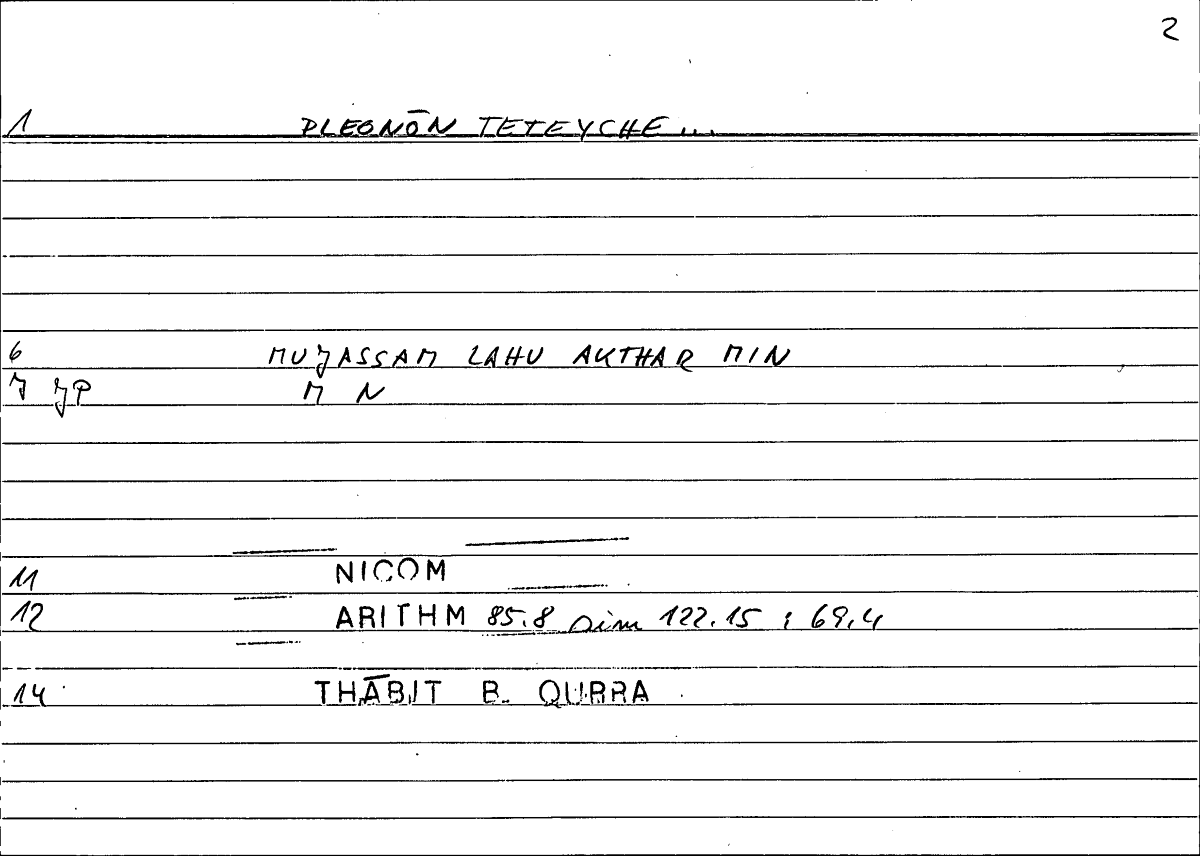 2
1 PLEONŌN TETEYCHE...
6 MUJASSAM LAHU AKTHAR MIN
7 JP M N
11 NICOM
12 ARITHM 85.8 sim 122.15 ; 69.4
14 THĀBIT B. QURRA